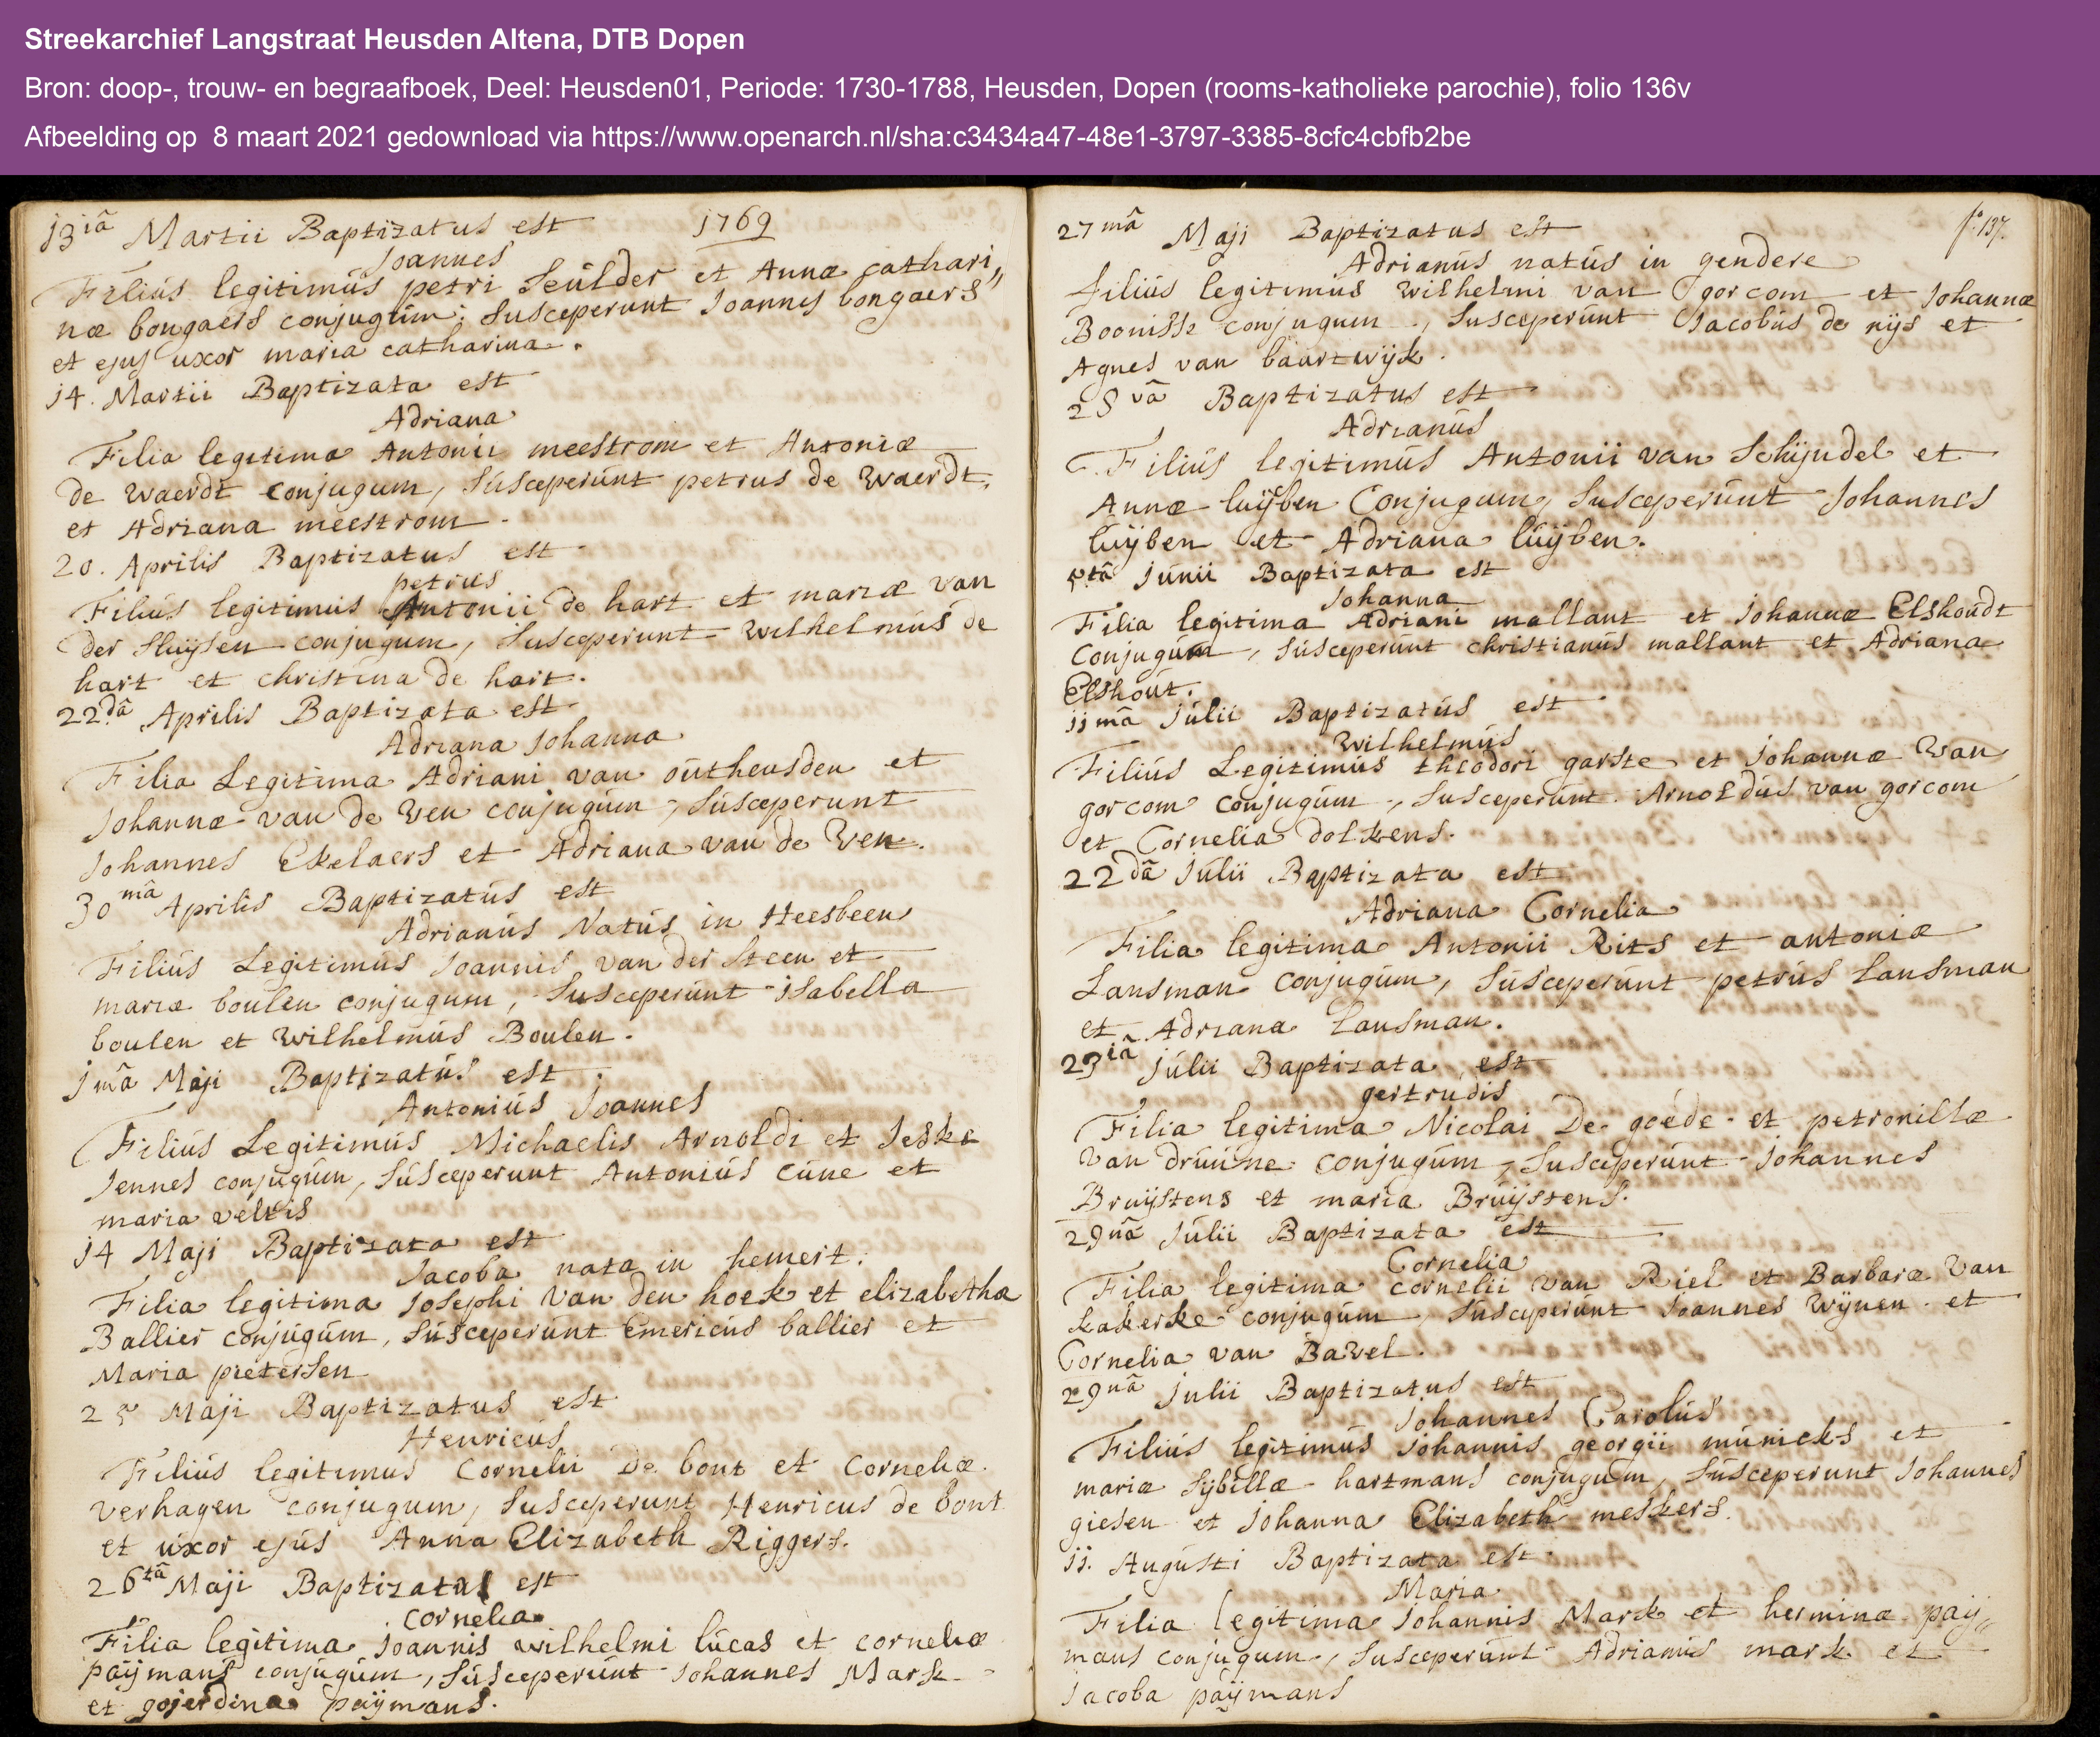 Streekarchief Langstraat Heusden Altena, DTB Dopen
Bron: doop-, trouw- en begraafboek, Deel: Heusden01, Periode: 1730-1788, Heusden, Dopen (rooms-katholieke parochie), folio 136v
Afbeelding op 8 maart 2021 gedownload via https://www.openarch.nl/sha:c3434a47-48e1-3797-3385-8cfc4cbfb2be
13iâ Martii Baptizatus est 1769
Joannes
Filiús legitimús petri Seúlder et Annæ cathari„
næ bongaers conjugúm; Susceperunt Joannes bongaers
et ejus uxor maria catharina.
14. Martii Baptizata est
Adriana
Filia legitima Antonii meestrom et Antoniæ
de Waerdt conjugum, súsceperúnt petrus de Waerdt,
et Adriana meestrom.
20. Aprilis Baptizatus est
petrus
Filiús legitimus Antonii de hart et mariæ van
der Sluijsen conjugum, Susceperunt Wilhelmús de
hart et christina de hart.
22dâ Aprilis Baptizata est
Adriana Johanna
Filia Legitima Adriani van oútheusden et
Johannæ van de Ven conjugúm, súsceperunt
Johannes Ekelaers et Adriana van de Ven.
30mâ Aprilis Baptizatús est
Adrianús Natús in Heesbeen
Filiús Legitimús Joannis van der Steen et
mariæ boulen conjugum, Susceperúnt isabella
boulen et Wilhelmús Boulen.
1mâ Maji Baptizatús est
Antoniús Joannes
Filiús Legitimús Michaelis Arnoldi et Jeske
Jennes conjugúm, súsceperunt Antoniús Cúne et
maria veltis
14 Maji Baptizata est
Jacoba nata in hemert.
Filia legitima Josephi Van den hoek et elizabetha
Ballier conjúgúm, súsceperúnt Emericús ballier et
Maria pietersen
25 Maji Baptizatus est
Henricús
Filiús legitimus Cornelii De bont et Corneliæ
verhagen conjugum, Susceperunt Henricus de bont
et úxor ejús Anna Elizabeth Riggers.
26tâ Maji Baptizata est
Cornelia
Filia legitima Joannis wilhelmi lúcas et corneliæ
paijmans conjúgúm, súsceperúnt Johannes Mark
et gojerdina paijmans.
27mâ Maji Baptizatus est fo: 137.
Adrianús natús in gendere
filiús legitimus Wilhelmi van gorcom et Johannæ
Boonisse conjugum, Susceperúnt Jacobús de rijs et
Agnes van báartwijk.
28vâ Baptizatus est
Adrianús
Filiús legitimús Antonii van Schijndel et
Annæ lúijben Conjugum, Susceperúnt Johannes
lúijben et Adriana lúijben.
5tâ Júnii Baptizata est
Johanna
Filia legitima Adriani mallant et Johannæ Elshoudt
Conjugúm, súsceperúnt christianús mallant et Adriana
Elshoút.
11mâ Júlii Baptizatús est
Wilhelmús
Filiús Legitimús theodori garste et Johannæ Van
gorcom conjugúm, Susceperúnt Arnoldús van gorcom
et Cornelia dolkens.
22dâ Júlii Baptizata est
Adriana Cornelia
Filia legitima Antonii Rits et antoniæ
Lansman Conjugúm, Súsceperúnt petrús Lansman
et Adriana Lansman.
23iâ Júlii Baptizata est
gertrúdis
Filia legitima Nicolai De goéde et petronillæ
van drúúne conjugúm, Susceperúnt Johannes
Brúijstens et maria Brúijstens.
29nâ Júlii Baptizata est
Cornelia
Filia legitima cornelii Van Riel et Barbaræ Van
kakerke conjugúm, Súsceperúnt Joannes Wijnen et
Cornelia van Bavel.
29nâ Julii Baptizatus est
Johannes Carolús
Filiús legitimús Johannis georgii múnicks et
mariæ Sijbillæ hartmans conjugum, Súsceperunt Johannes
giesen et Johanna Elizabeth meskers.
11. Augústi Baptizata est
Maria
Filia legitima Johannis Mark et herminæ paij„
mans conjugum, Susceperúnt Adrianús mark et
Jacoba paijmans